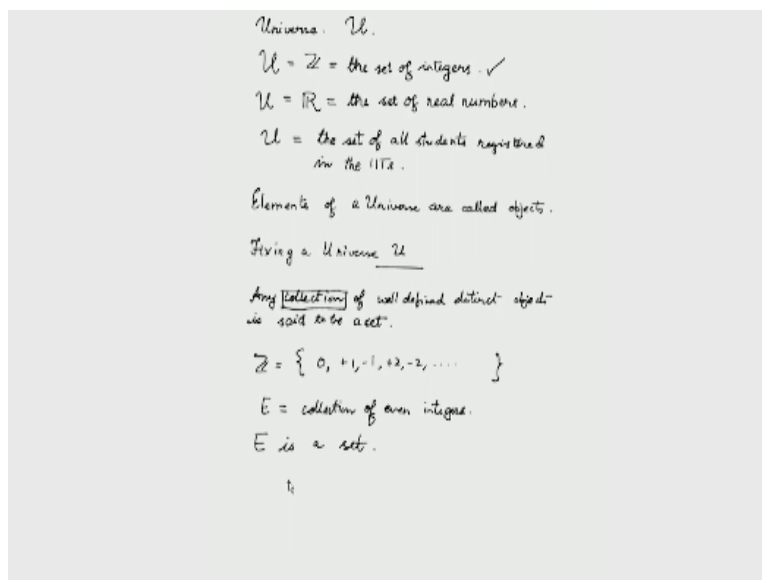 Universe. U.
U = ℤ = the set of integers. ✓
U = ℝ = the set of real numbers.
U = the set of all students registered
in the IITs.
Elements of a Universe are called objects.
Fixing a Universe U
Any collection of well defined distinct objects
is said to be a set.
ℤ = { 0, +1, -1, +2, -2, .... }
E = collection of even integers.
E is a set.